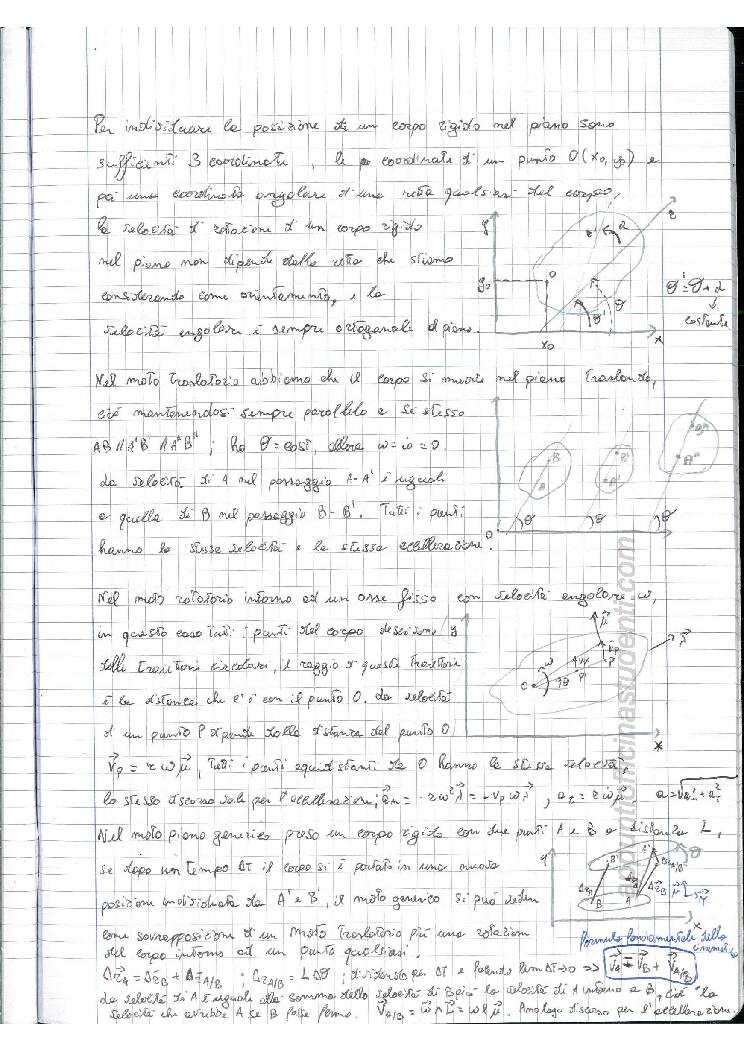 Per individuare la posizione di un corpo rigido nel piano sono
sufficienti 3 coordinate, le coordinate di un punto O(x₀, y₀) e
più una coordinata angolare di una retta qualsiasi del corpo,
la velocità di rotazione di un corpo rigido
nel piano non dipende dalla retta che stiamo
considerando come orientamento, e la
velocità angolare è sempre ortogonale al piano.
y
y₀
O
x₀
x
r
r'
α
θ
θ'
θ' = θ + α
costante
Nel moto traslatorio abbiamo che il corpo si muove nel piano traslando,
cioè mantenendosi sempre parallelo a se stesso
AB // A'B' // A"B" ; ho θ = cost, allora ω = ω̇ = 0.
La velocità di A nel passaggio A-A' è uguale
a quella di B nel passaggio B-B'. Tutti i punti
hanno la stessa velocità e la stessa accellerazione.
A
B
A'
B'
A"
B"
O
θ
θ
θ
Nel moto rotatorio intorno ad un asse fisso con velocità angolare ω,
in questo caso tutti i punti del corpo descrivono
delle traiettorie circolari, il raggio di questa traiettoria
è la distanza che c'è con il punto O. La velocità
di un punto P dipende dalla distanza dal punto O
v⃗p = r ω μ⃗, tutti i punti equidistanti da O hanno la stessa velocità,
lo stesso discorso vale per l'accellerazione; a⃗n = -rω²λ⃗ = -vp ω λ⃗ , at = r ω̇ μ⃗. a = √(an² + at²)
y
x
O
ω
θ
P
μ⃗
λ⃗
Nel moto piano generico preso un corpo rigido con due punti A e B a distanza L,
se dopo un tempo ΔT il corpo si è portato in una nuova
posizione individuata da A' e B', il moto generico si può vedere
come sovrapposizione di un moto traslatorio più una rotazione
del corpo intorno ad un punto qualsiasi.
y
x
A
B
A'
B'
Formula fondamentale della cinematica
Δr⃗A = Δr⃗B + Δr⃗A/B ; ΔrA/B = LΔθ ; dividendo per ΔT e facendo lim ΔT→0 => v⃗A = v⃗B + v⃗A/B
La velocità di A è uguale alla somma della velocità di B più la velocità di A intorno a B, cioè la
velocità che avrebbe A se B fosse fermo. v⃗A/B = ω⃗ ∧ L⃗ = ωLμ⃗. Analogo discorso per l'accellerazione.
appuntiofficinastudenti.com